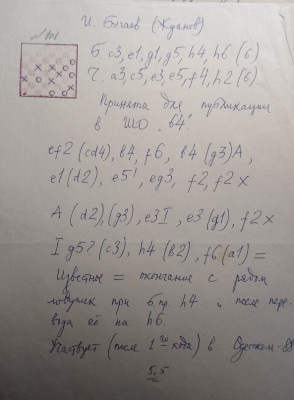 И. Бачаев (Жданов)
№101
Б. c3, e1, g1, g5, h4, h6 (6)
Ч. a3, c5, e3, e5, f4, h2 (6)
Принята для публикации
в ШО. b4!
ef2 (cd4), b4, f6, b4 (g3)A,
e1 (d2), e5!, eg3, f2, f2 x
A (d2), (g3), e3 I, e3 (g1), f2x
I g5? (c3), h4 (b2), f6 (a1) =
Известное = окончание с рядом
ловушек при б пр. h4 и после пере-
вода её на h6.
Участвует (после 1го хода) в Одесском-88
5,5